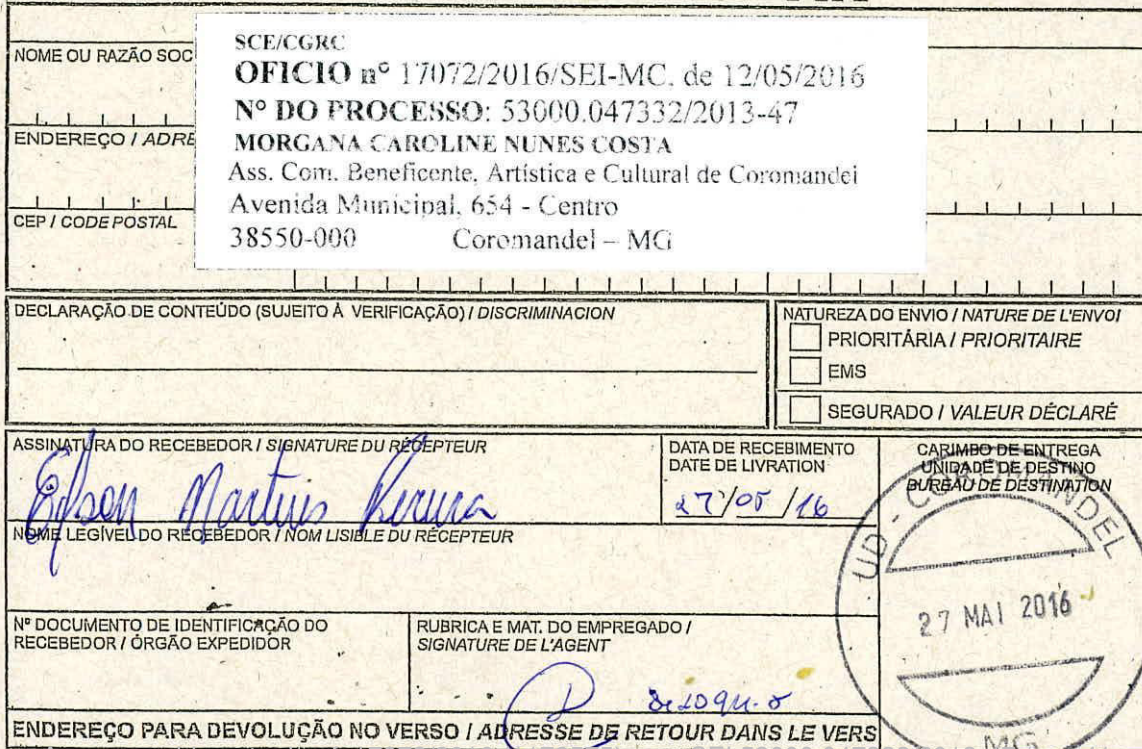 NOME OU RAZÃO SOC
SCE/CGRC
OFICIO nº 17072/2016/SEI-MC, de 12/05/2016
Nº DO PROCESSO: 53000.047332/2013-47
MORGANA CAROLINE NUNES COSTA
Ass. Com. Beneficente, Artística e Cultural de Coromandel
Avenida Municipal, 654 - Centro
38550-000 Coromandel – MG
ENDEREÇO / ADRE
CEP / CODE POSTAL
DECLARAÇÃO DE CONTEÚDO (SUJEITO À VERIFICAÇÃO) / DISCRIMINACION
NATUREZA DO ENVIO / NATURE DE L'ENVOI
PRIORITÁRIA / PRIORITAIRE
EMS
SEGURADO / VALEUR DÉCLARÉ
ASSINATURA DO RECEBEDOR / SIGNATURE DU RÉCEPTEUR
Martins
DATA DE RECEBIMENTO
DATE DE LIVRATION
27/05/16
CARIMBO DE ENTREGA
UNIDADE DE DESTINO
BUREAU DE DESTINATION
UD - COROMANDEL
27 MAI 2016
MG
NOME LEGÍVEL DO RECEBEDOR / NOM LISIBLE DU RÉCEPTEUR
Nº DOCUMENTO DE IDENTIFICAÇÃO DO
RECEBEDOR / ÓRGÃO EXPEDIDOR
RUBRICA E MAT. DO EMPREGADO /
SIGNATURE DE L'AGENT
ENDEREÇO PARA DEVOLUÇÃO NO VERSO / ADRESSE DE RETOUR DANS LE VERS